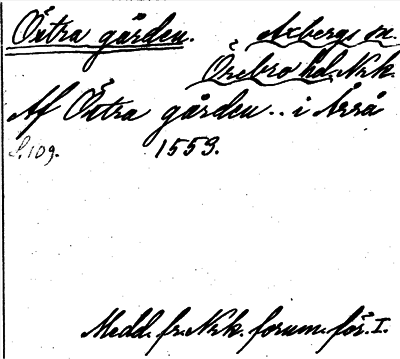 Östra gården. Axbergs sn.
Örebro hd. Nrk.
Af Östra gården.. i Årså
s. 109. 1553.
Medd. fr. Nrk. fornm. för. I.